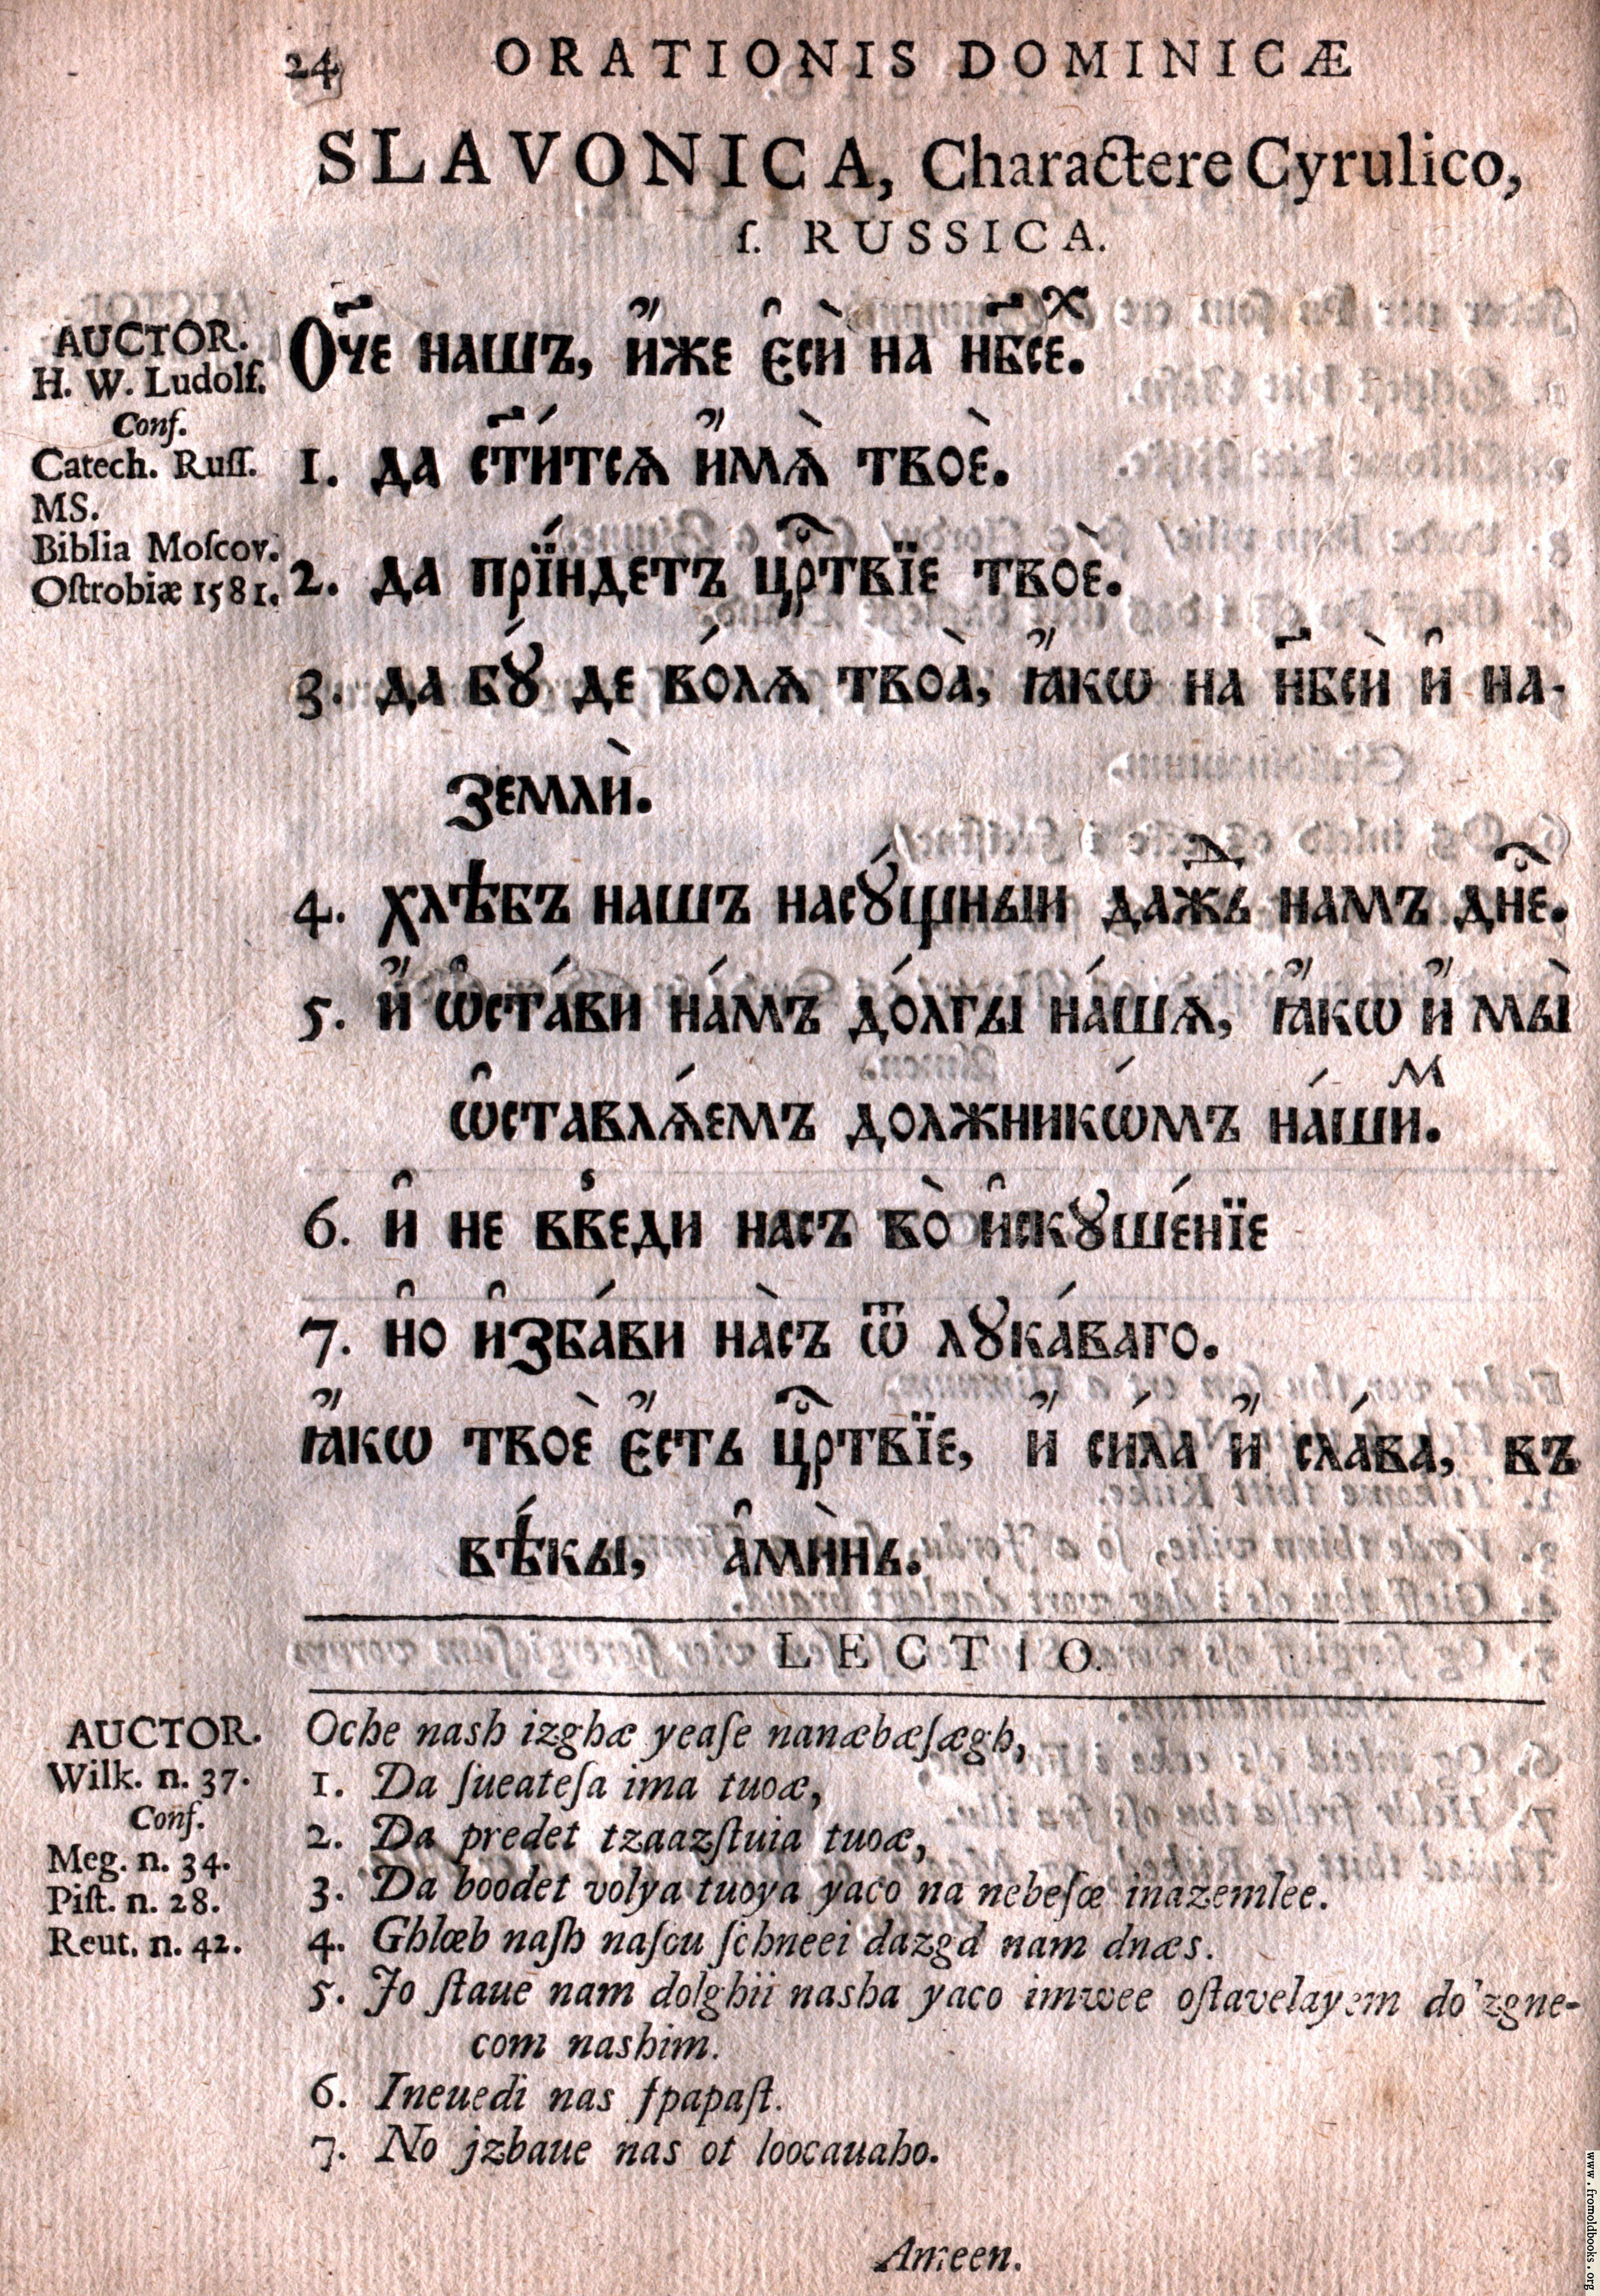 24 ORATIONIS DOMINICÆ
SLAVONICA, Charactere Cyrulico,
ſ. RUSSICA.
AUCTOR.
H. W. Ludolf.
Conf.
Catech. Ruſſ.
MS.
Biblia Moſcov.
Oſtrobiæ 1581.
Оч҃е нашъ, и҆́же є҆сѝ на нб҃сеⷯ.
1. да ст҃и́тсѧ и҆́мѧ̀ твоѐ.
2. да прїи́ндетъ црⷭ҇твїе твоѐ.
3. да бꙋ́ де во́лѧ твоѧ̀, ꙗ҆́кѡ на нб҃сѝ и҆ на-
землѝ.
4. хлѣбъ нашъ насꙋ́щныи даⷤжь намъ днⷭ҇е.
5. и҆́ ѡ҆ста́ви на́мъ до́лгы на́шѧ, ꙗ҆́кѡ и҆́ мы̀
ѡ҆ставлѧ́емъ должникѡ́мъ на́шиⷨ.
6. и҆ не введи насъ во̀ и҆скꙋше́нїе
7. но҆ и҆зба́ви на̀съ ѿ лꙋка́ваго.
ꙗ҆́кѡ твоѐ є҆́сть црⷭ҇твїе, и҆́ си́ла и҆́ сла́ва, въ
вѣ́кы, а҆мѝнь.
LECTIO.
AUCTOR.
Wilk. n. 37.
Conf.
Meg. n. 34.
Piſt. n. 28.
Reut. n. 42.
Oche nash izghæ yeaſe nanæbæſægh,
1. Da ſueateſa ima tuoæ,
2. Da predet tzaazſtuia tuoæ,
3. Da boodet volya tuoya yaco na nebeſæ inazemlee.
4. Ghlæb naſh naſou ſchneei dazgd nam dnæs.
5. Jo ſtaue nam dolghii nasha yaco imwee oſtavelayem do'zgne-
com nashim.
6. Ineuedi nas ſpapaſt.
7. No jzbaue nas ot loocauaho.
Ameen.
www.fromoldbooks.org